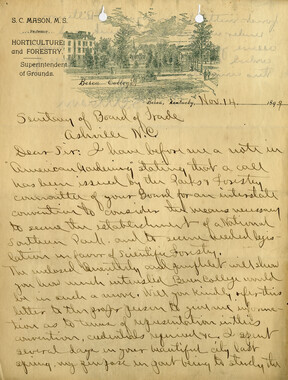 S. C. MASON, M. S.
HORTICULTURE
AND FORESTRY.
Superintendent
of Grounds.
Berea College
Berea, Kentucky, Nov. 14, 1899
Secretary of Board of Trade
Ashville N.C.
Dear Sir: I have before me a note in
"American Gardening" stating that a call
has been issued by the Park & Forestry
committee of your Board for an interstate
convention to consider the means necessary
to secure the establishment of a National
Southern Park and to secure needed legis-
lation in favor of Scientific Forestry.
The enclosed and pamphlet will show
you how much interested Berea College would
be in such a move. Will you kindly refer this
letter to the proper person to give me informa-
tion as to terms of representation in this
convention, credentials required &c. I spent
several days in your beautiful city last
spring, my purpose in part being to study the